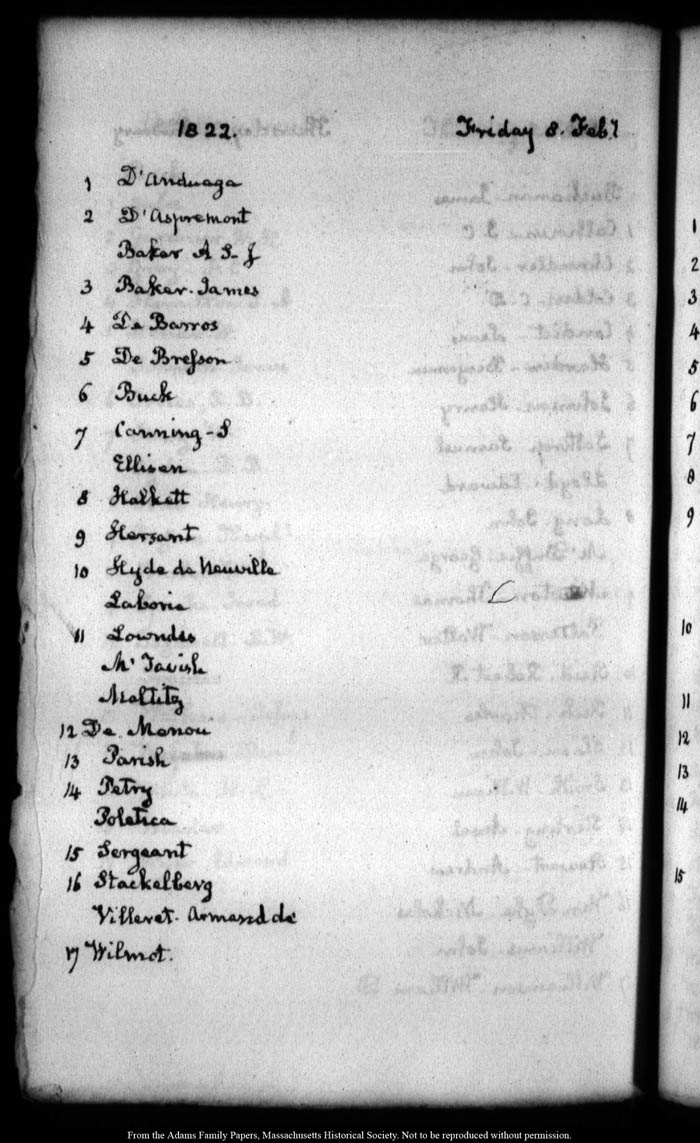 1822. Friday 8. Feby
1 D'Anduaga
2 D'Aspremont
Baker A S-J
3 Baker. James
4 De Barros
5 De Bresson
6 Buck
7 Canning-S
Ellisen
8 Halkett
9 Hersant
10 Hyde de Neuville
Laborie
11 Lowndes
Mc Tavish
Maltitz
12 De Menou
13 Parish
14 Petry
Poletica
15 Sergeant
16 Stackelberg
Villeret. Armand de
17 Wilmot.
1
2
3
4
5
6
7
8
9
10
11
12
13
14
15
From the Adams Family Papers, Massachusetts Historical Society. Not to be reproduced without permission.